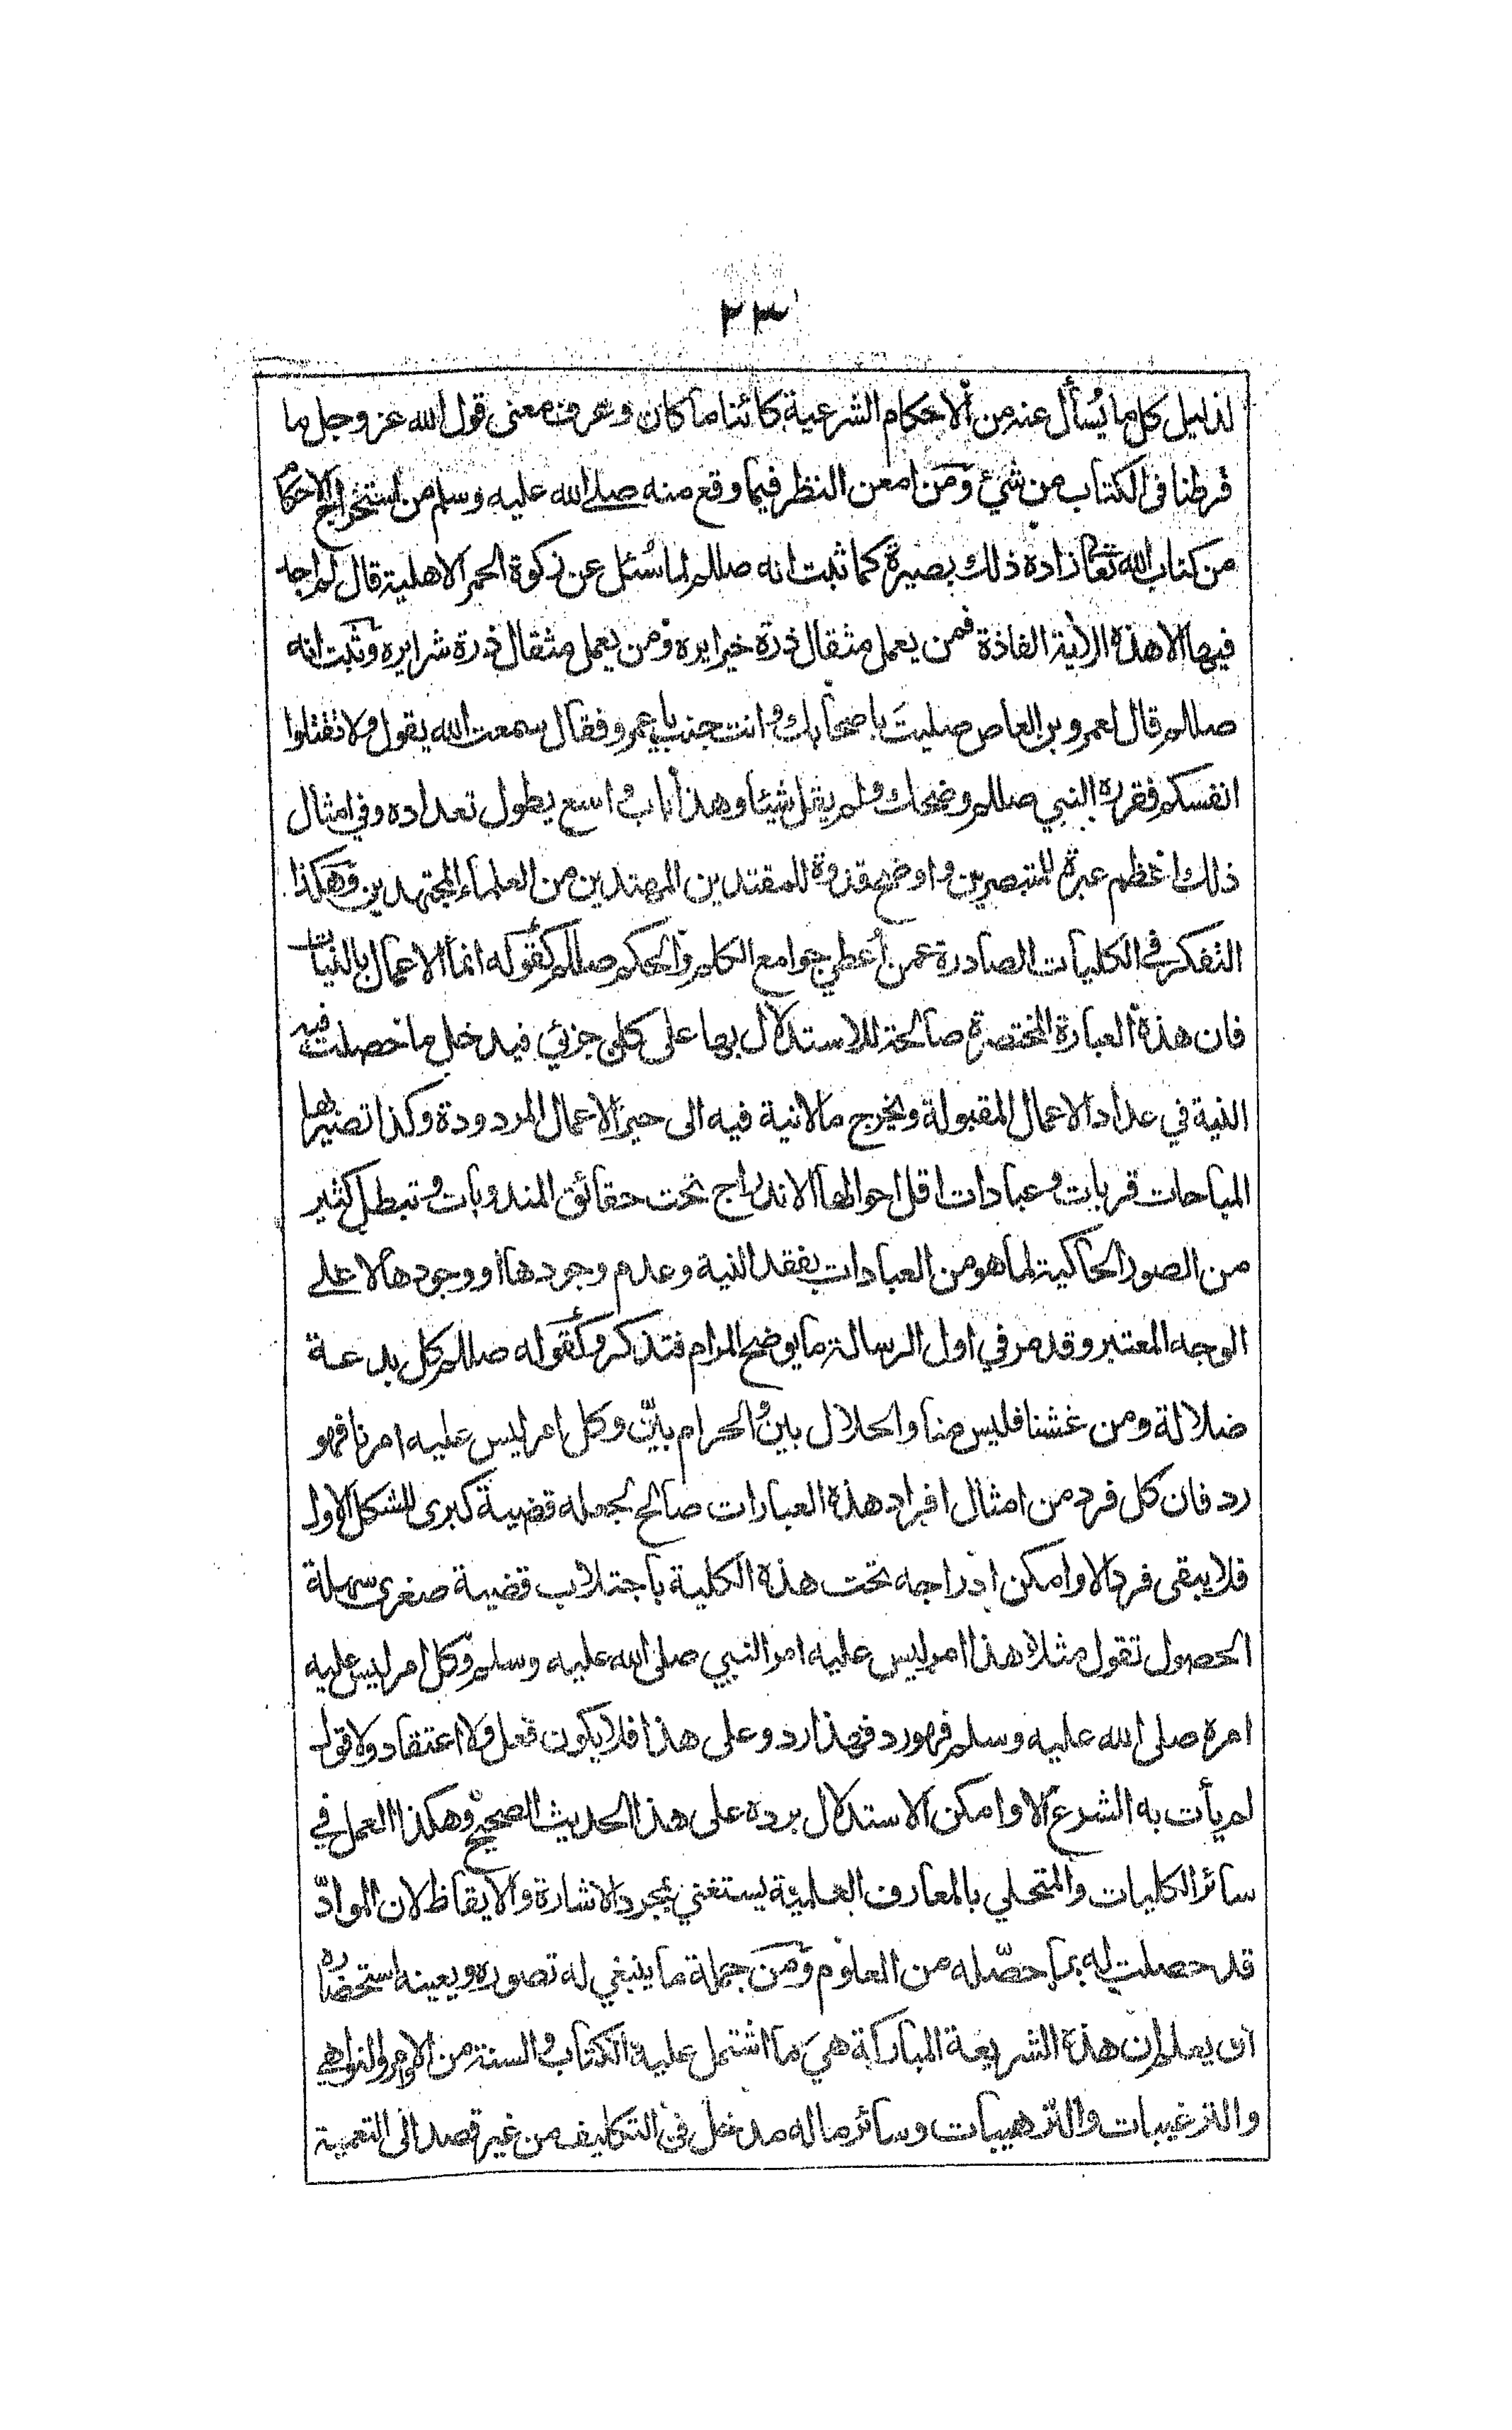 ٢٣
لدليل كل ما يُسأل عنه من الاحكام الشرعية كائنا ما كان وعرف معنى قول الله عز وجل ما
فرطنا فى الكتاب من شئ ومن امعن النظر فيما وقع منه صلى الله عليه وسلم من استخراج الاحكام
من كتاب الله تعالى زاده ذلك بصيرة كما ثبت انه صللم لما سُئل عن زكوة الحمر الاهلية قال لم اجد
فيها الا هذه الاية الفاذة فمن يعمل مثقال ذرة خيرا يره ومن يعمل مثقال ذرة شرا يره وثبت انه
صللم قال لعمرو بن العاص صليتَ باصحابك وانت جنب يا عمرو فقال سمعت الله يقول ولا تقتلوا
انفسكم فقرره النبي صللم وضحك ولم يقل شيئا وهذا باب واسع يطول تعداده وفي امثال
ذلك اعظم عبرة للمتبصرين واوضح قدوة للمقتدين المهتدين من العلماء المجتهدين وهكذا
التفكر في الكليات الصادرة عمن أعطي جوامع الكلم والحكم صللم كقوله انما الاعمال بالنيات
فان هذه العبارة المختصرة صالحة للاستدلال بها على كل جزئي فيدخل ما حصلت فيه
النية في عداد الاعمال المقبولة ويخرج مالا نية فيه الى حيز الاعمال المردودة وكذا تصير بها
المباحات قربات وعبادات اقل احوالها الاندراج تحت حقائق المندوبات وتبطل كثير
من الصور الحاكية لما هو من العبادات بفقد النية وعدم وجودها او وجودها لا على
الوجه المعتبر وقد مر في اول الرسالة ما يوضح المرام فتذكر وكقوله صللم كل بدعة
ضلالة ومن غشنا فليس منا والحلال بين والحرام بيّن وكل امر ليس عليه امرنا فهو
رد فان كل فرد من امثال افراد هذه العبارات صالح لجعله قضية كبرى للشكل الاول
فلا يبقى فرد الا وامكن ادراجه تحت هذه الكلية باجتلاب قضية صغرى سهلة
الحصول تقول مثلا هذا امر ليس عليه امر النبي صلى الله عليه وسلم وكل امر ليس عليه
امره صلى الله عليه وسلم فهو رد فهذا رد وعلى هذا فلا يكون فعل ولا اعتقاد ولا قول
لم يأت به الشرع الا وامكن الاستدلال برده على هذا الحديث الصحيح وهكذا العمل في
سائر الكليات والمتحلي بالمعارف العلميّة يستغني بمجرد الاشارة والايقاظ لان الموادّ
قد حصلت له بما حصّله من العلوم ومن جملة ما ينبغي له تصوره ويعينه استحضاره
ان يعلم ان هذه الشريعة المباركة هي ما اشتمل عليه الكتاب والسنة من الاوامر والنواهي
والترغيبات والترهيبات وسائر ماله مدخل فى التكليف من غير قصد الى التعمية